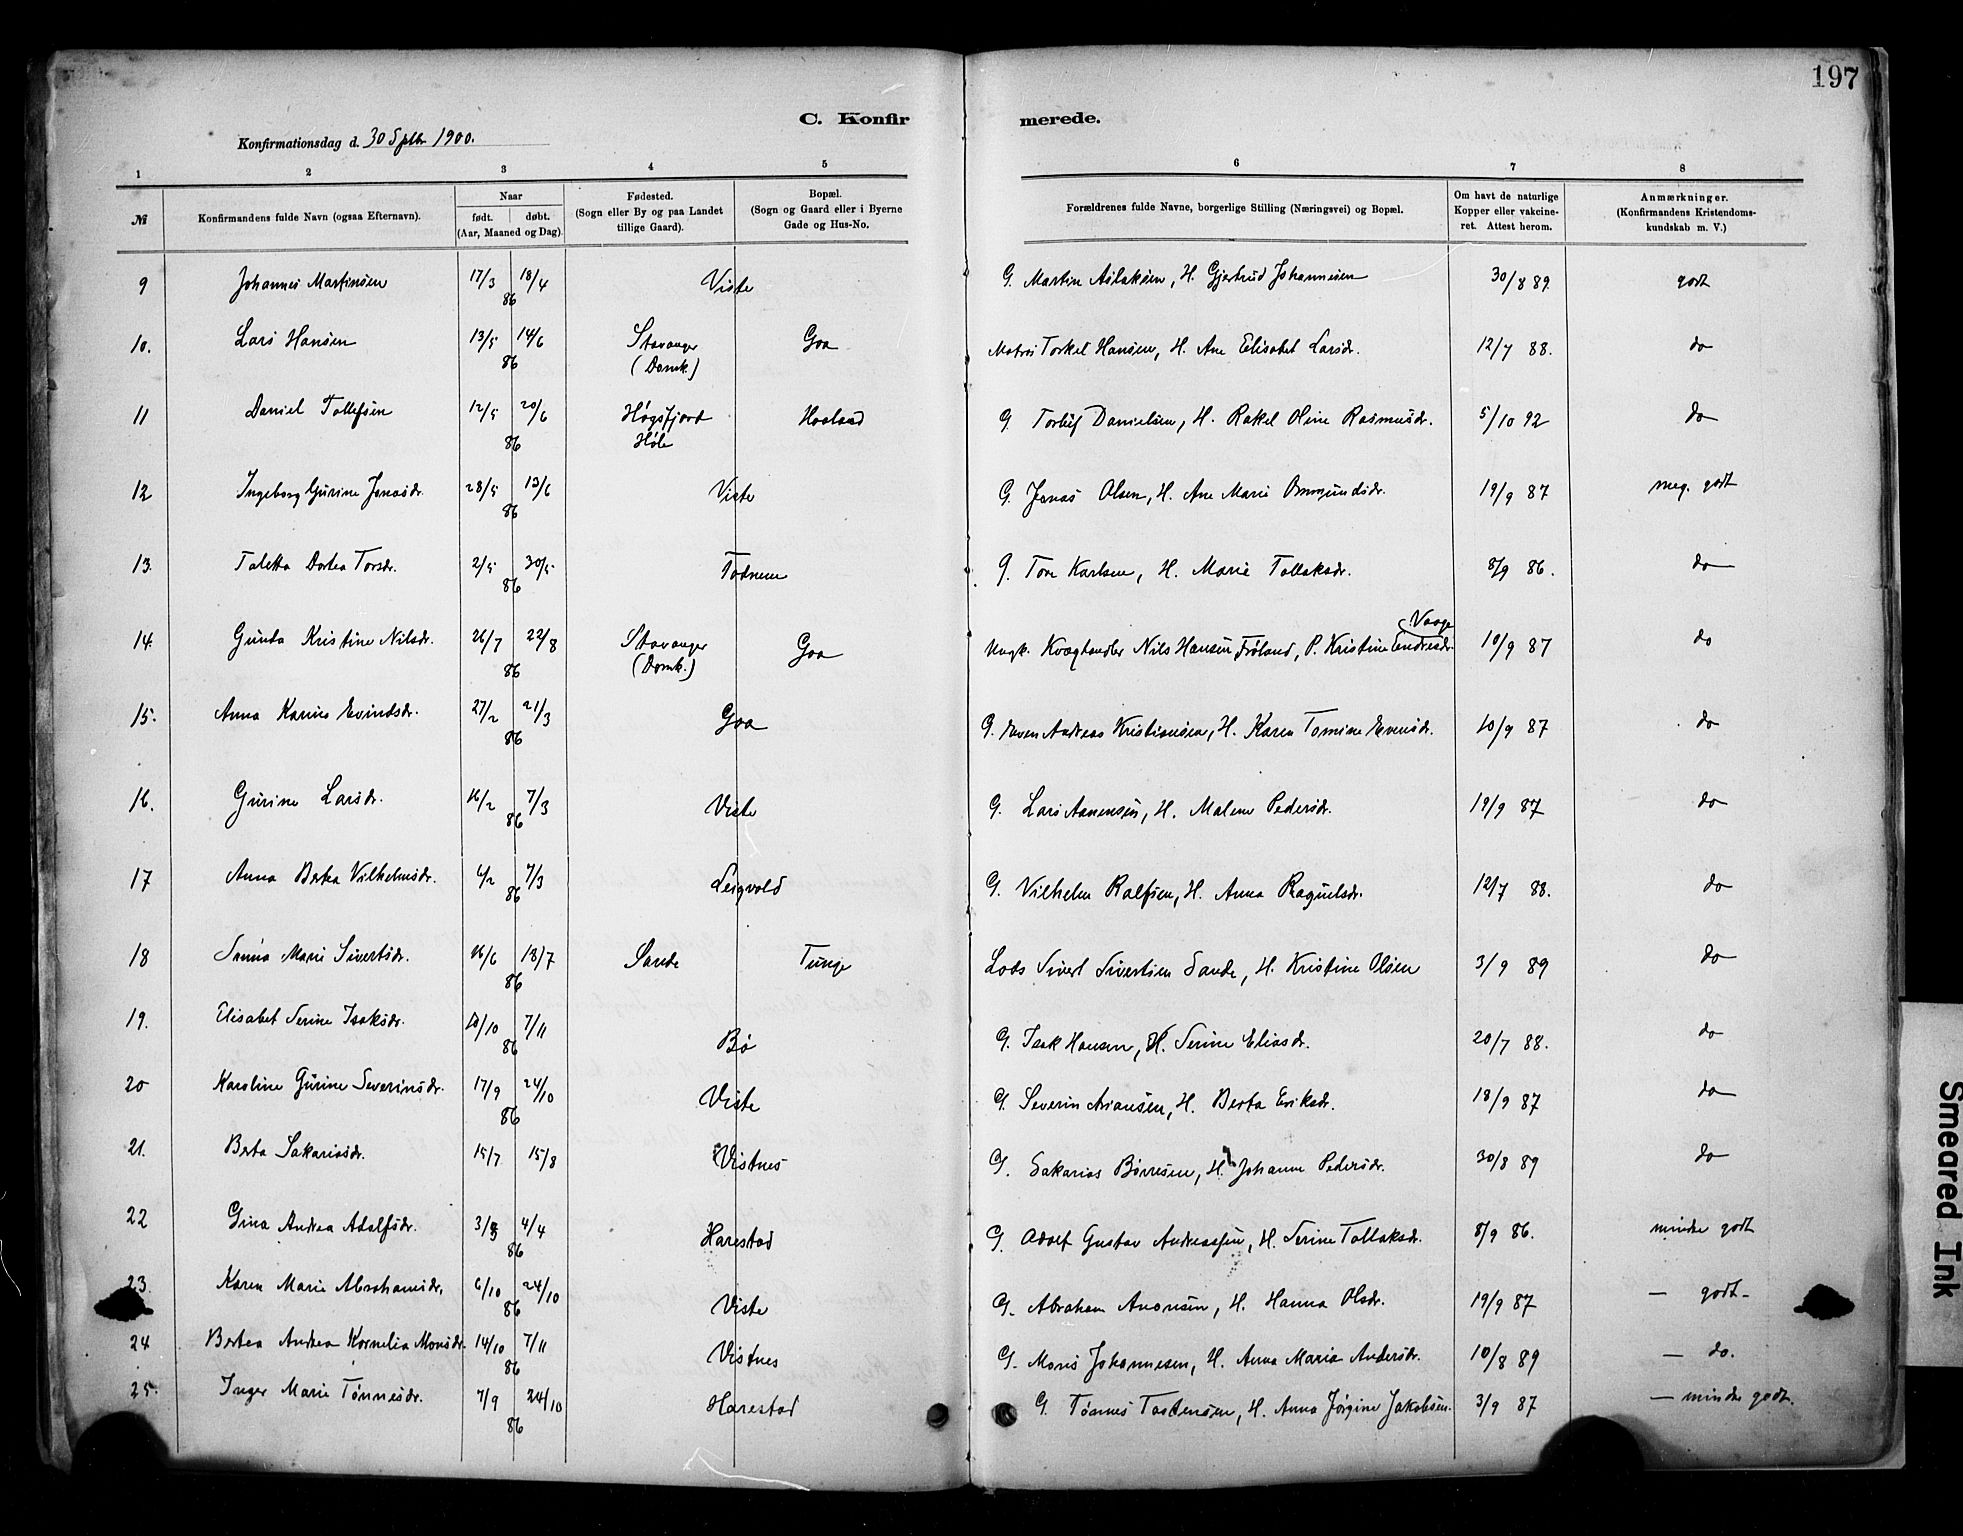 197
C. Konfirmerede.
Konfirmationsdag d. 30 Septbr 1900.
1 2 3 4 5 6 7 8
№ Konfirmandens fulde Navn (ogsaa Efternavn). Naar født. døbt. (Aar, Maaned og Dag). Fødested. (Sogn eller By og paa Landet tillige Gaard). Bopæl. (Sogn og Gaard eller i Byerne Gade og Hus-No. Forældrenes fulde Navne, borgerlige Stilling (Næringsvei) og Bopæl. Om havt de naturlige Kopper eller vakcineret. Attest herom. Anmærkninger. (Konfirmandens Kristendomskundskab m. V.)
9 Johannes Martinsen 17/3 18/4 86 Viste G. Martin Aslaksen, H. Gjertrud Johannesen 30/8 89. godt
10. Lars Hansen 13/5 14/6 86 Stavanger (Domk.) Goa Matros Torkel Hansen, H. Ane Elisabet Larsdr. 12/7 88. do
11 Daniel Tollefsen 12/5 20/6 86 Høgsfjord Høle Haaland G Danielsen, H. Rakel Oline Rasmusdr. 5/10 92 do
12 Ingeborg Gurine Jonasdr. 28/5 13/6 86 Viste G. Jonas Olsen, H. Ane Marie Ommundsdr. 19/9 87 meg. godt
13. Taletta Dortea Torsdr. 2/5 30/5 86 Todnem G. Tore Karlsen, H. Marie Tollaksdr. 8/9 86. do
14. Gunda Kristine Nilsdr. 26/7 22/8 86 Stavanger (Domk.) Goa Ungk. Kvæghandler Nils Hansen Frøland, P. Kristine Endresdr. Vaage 10/9 87 do
15. Anna Karine Evindsdr. 27/2 21/3 86 Goa G. Even Andreas Kristiansen, H. Karen Tomine Evensdr. 10/9 87 do
16. Gurine Larsdr. 16/2 7/3 86 Viste G. Lars Aanensen, H. Malene Pedersdr. 19/9 87 do
17 Anna Berta Vilhelmsdr. 4/2 7/3 86 Leigvold G. Vilhelm Ralfsen, H. Anna Raguelsdr. 12/7 88. do
18 Sanna Marie Sivertsdr. 16/6 18/7 86 Sande Tunge Lods Sivert Sivertsen Sande, H. Kristine Olsen 3/9 89 do
19. Elisabet Serine Isaksdr. 10/10 7/11 86 Bø G. Isak Hansen, H. Serine Eliasdr. 20/7 88. do
20 Karoline Gurine Severinsdr. 17/9 24/10 86 Viste G. Severin Ariansen, H. Berta Eriksdr. 18/9 87 do
21. Berta Sakariasdr. 15/7 15/8 Vistnes G. Sakarias Børresen, H. Johanne Pedersdr. 30/8 89 do
22 Gina Andrea Adolfsdr. 3/3 4/4 86 Harestad G. Adolf Gustav Andreassen, H. Serine Tollaksdr. 8/9 86. mindre godt
23. Karen Marie Abrahamsdr. 6/10 24/10 86 Viste G. Abraham Anonsen, H. Hanna Olsdr. 19/9 87 — godt—
24 Bertea Andrea Kornelia Monsdr. 14/10 7/11 86 Vistnes G. Mons Johannesen, H. Anna Maria Andersdr. 10/8 89 — do.
25. Inger Marie Tønnesdr. 7/9 24/10 86 Harestad G. Tønnes Tostensen, H. Anna Jørgine Jakobsen. 3/9 87 — mindre godt.
Smeared Ink